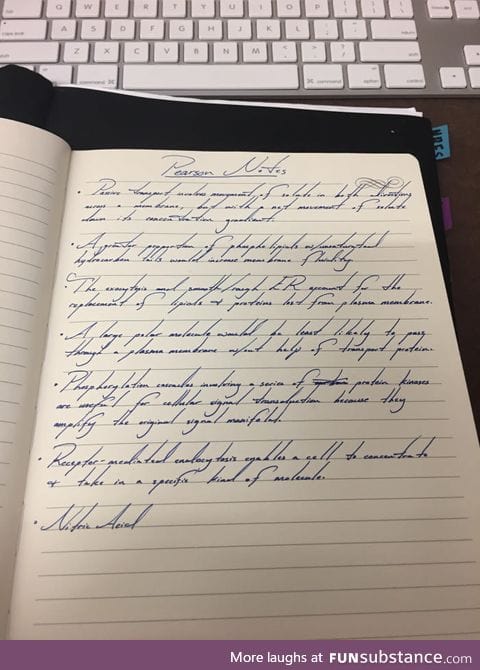 Pearson Notes
• Passive transport involves movement of solute in both directions
across a membrane, but with a net movement of solute
down its concentration gradient.
• A greater proportion of phospholipids w/unsaturated
hydrocarbon tails would increase membrane fluidity.
• The exocytosis and smooth/rough ER account for the
replacement of lipids & proteins lost from plasma membrane.
• A large polar molecule would be least likely to pass
through a plasma membrane w/out help of transport protein.
• Phosphorylation cascades involving a series of protein kinases
are useful for cellular signal transduction because they
amplify the original signal manifold.
• Receptor-mediated endocytosis enables a cell to concentrate
& take in a specific kind of molecule.
• Nitric Acid
NOTES
caps lock
A S D F G H J K L
return
shift
Z X C V B N M
shift
command
command option control
More laughs at FUNsubstance.com